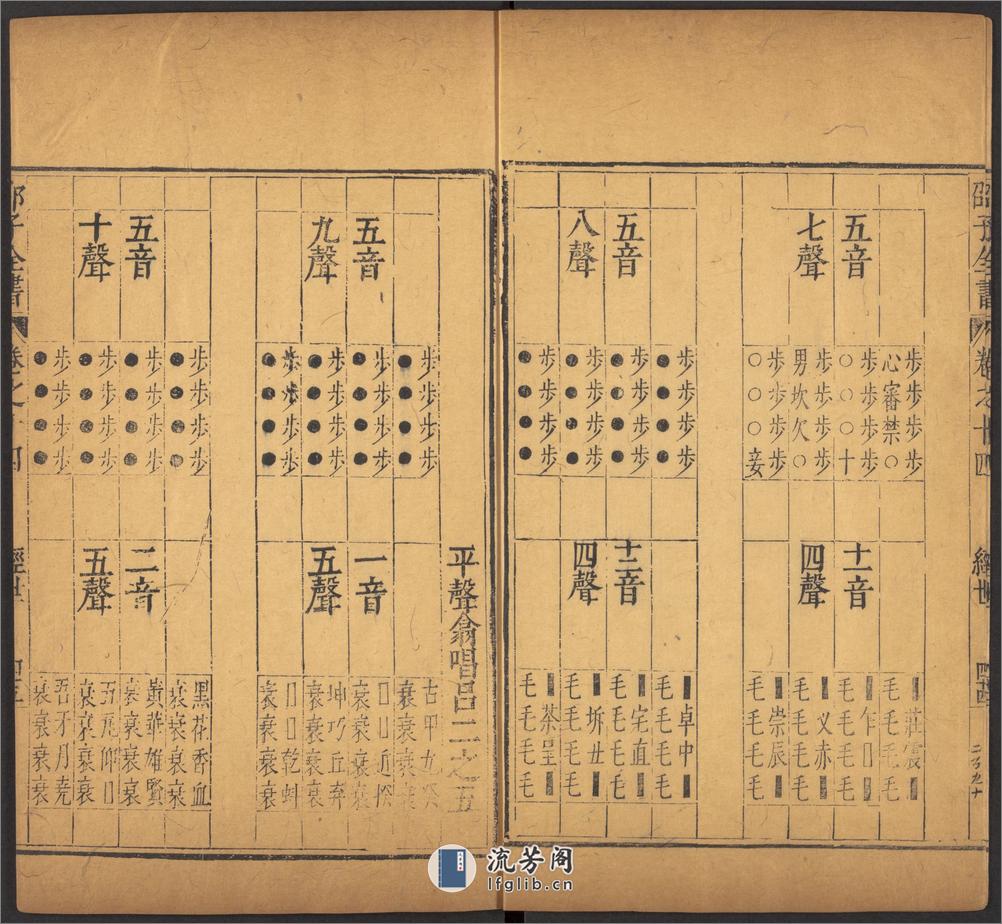 邵子全書 卷之十四 經世 四十四 二百九十
五音
七聲
步步步步
心審禁○
步步步步
○○○十
步步步步
男坎欠○
步步步步
○○○妾
十一音
四聲
▌莊震▌
毛毛毛毛
▌乍□▌
毛毛毛毛
▌叉赤▌
毛毛毛毛
▌崇辰▌
毛毛毛毛
五音
八聲
步步步步
●●●●
步步步步
●●●●
步步步步
●●●●
步步步步
●●●●
十二音
四聲
▌卓中▌
毛毛毛毛
▌宅直▌
毛毛毛毛
▌坼丑▌
毛毛毛毛
▌茶呈▌
毛毛毛毛
平聲翕唱呂二之五
五音
九聲
步步步步
●●●●
步步步步
●●●●
步步步步
●●●●
步步步步
●●●●
一音
五聲
古甲九癸
衰衰衰衰
□□近揆
衰衰衰衰
坤巧丘弃
衰衰衰衰
□□乾虯
衰衰衰衰
五音
十聲
步步步步
●●●●
步步步步
●●●●
步步步步
●●●●
步步步步
●●●●
二音
五聲
黑花香血
衰衰衰衰
黃華雄賢
衰衰衰衰
五瓦仰□
衰衰衰衰
吾牙月堯
衰衰衰衰
邵子全書 卷之十四 經世 四十五
流芳阁
lfglib.cn